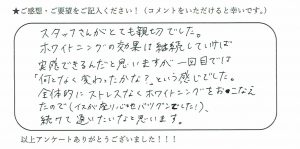 ★ご感想・ご要望をご記入ください！（コメントをいただけると幸いです。）
スタッフさんがとても親切でした。
ホワイトニングの効果は継続していけば
実感できるんだと思いますが、一回目では
「何となく変わったかな?」という感じでした。
全体的にストレスなくホワイトニングをおこなえ
たので(イスが座り心地バツグンでした!)、
続けて通いたいなと思います。
以上アンケートありがとうございました！！！